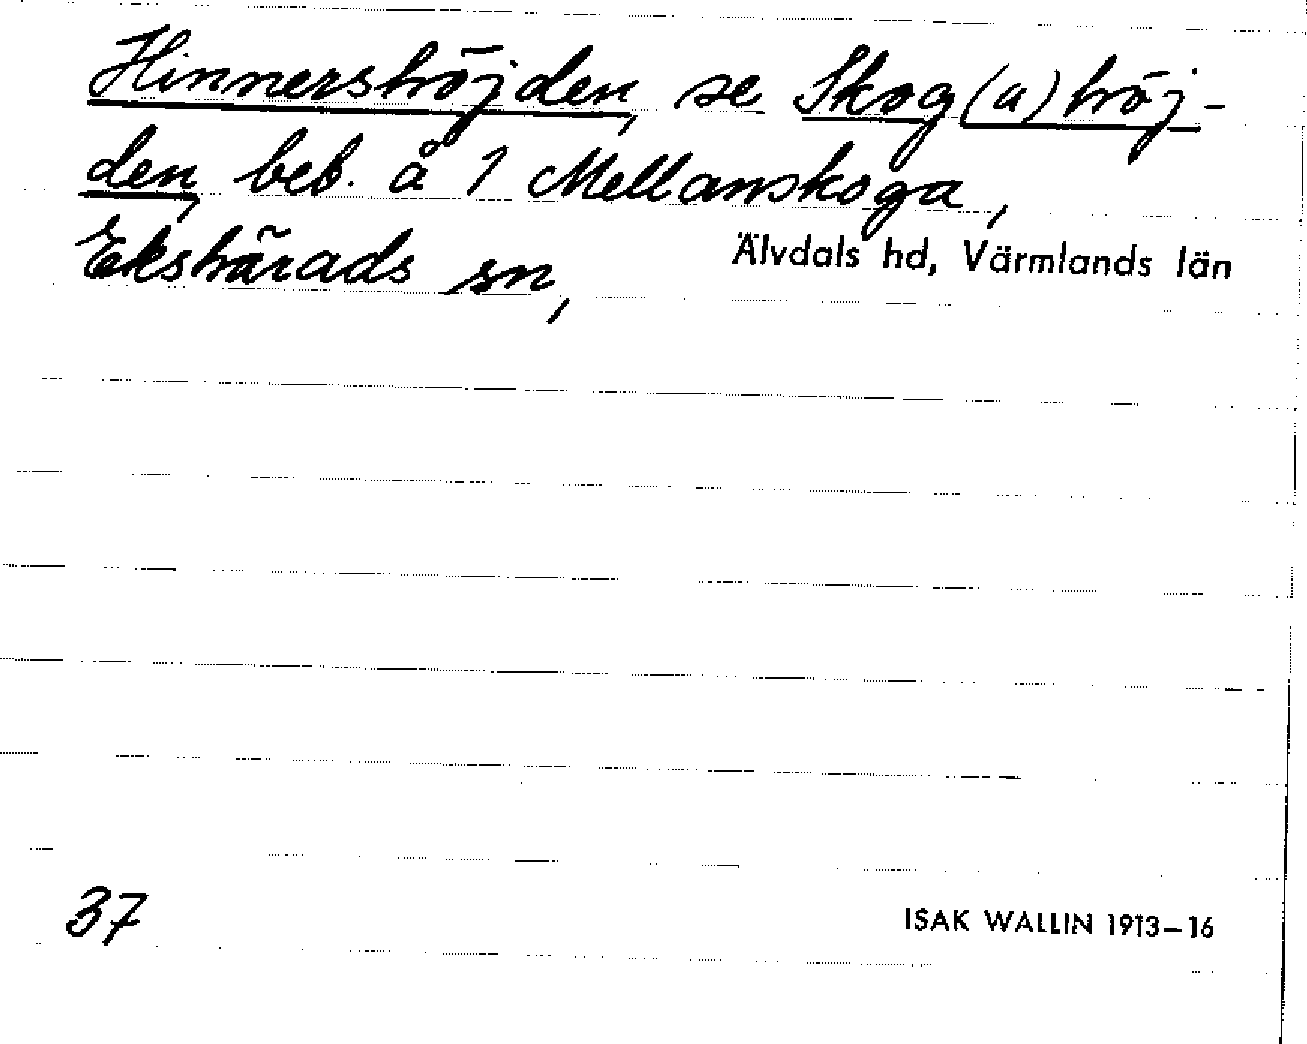 Hinnershöjden, se Skog(a)höj-
den, beb. å 1 Mellanskoga,
Ekshärads sn, Älvdals hd, Värmlands län
37
ISAK WALLIN 1913-16